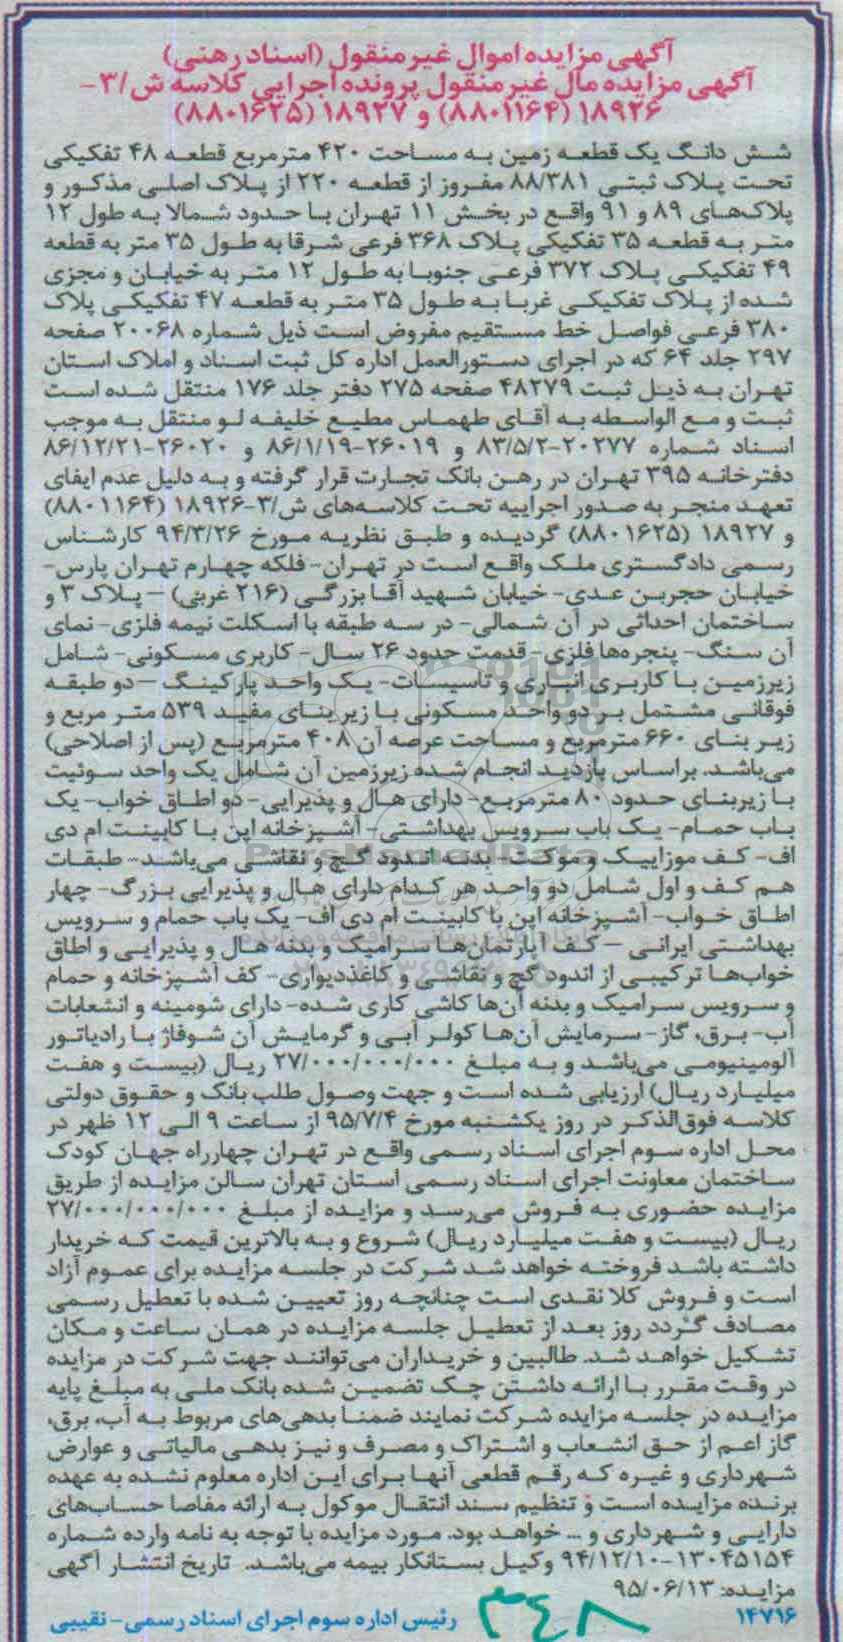 آگهی مزایده اموال غیرمنقول (اسناد رهنی)
آگهی مزایده مال غیرمنقول پرونده اجرایی کلاسه ش/۳-
۱۸۹۲۶ (۸۸۰۱۱۶۴) و ۱۸۹۲۷ (۸۸۰۱۶۲۵)
شش دانگ یک قطعه زمین به مساحت ۴۲۰ مترمربع قطعه ۴۸ تفکیکی
تحت پلاک ثبتی ۸۸/۳۸۱ مفروز از قطعه ۲۲۰ از پلاک اصلی مذکور و
پلاک‌های ۸۹ و ۹۱ واقع در بخش ۱۱ تهران با حدود شمالا به طول ۱۲
متر به قطعه ۳۵ تفکیکی پلاک ۳۶۸ فرعی شرقا به طول ۳۵ متر به قطعه
۴۹ تفکیکی پلاک ۳۷۲ فرعی جنوبا به طول ۱۲ متر به خیابان و مجزی
شده از پلاک تفکیکی غربا به طول ۳۵ متر به قطعه ۴۷ تفکیکی پلاک
۳۸۰ فرعی فواصل خط مستقیم مفروض است ذیل شماره ۲۰۰۶۸ صفحه
۲۹۷ جلد ۶۴ که در اجرای دستورالعمل اداره کل ثبت اسناد و املاک استان
تهران به ذیل ثبت ۴۸۲۷۹ صفحه ۲۷۵ دفتر جلد ۱۷۶ منتقل شده است
ثبت و مع الواسطه به آقای طهماس مطیع خلیفه لو منتقل به موجب
اسناد شماره ۲۰۲۷۷-۸۳/۵/۲ و ۲۶۰۱۹-۸۶/۱/۱۹ و ۲۶۰۲۰-۸۶/۱۲/۲۱
دفترخانه ۳۹۵ تهران در رهن بانک تجارت قرار گرفته و به دلیل عدم ایفای
تعهد منجر به صدور اجراییه تحت کلاسه‌های ش/۳-۱۸۹۲۶ (۸۸۰۱۱۶۴)
و ۱۸۹۲۷ (۸۸۰۱۶۲۵) گردیده و طبق نظریه مورخ ۹۴/۳/۲۶ کارشناس
رسمی دادگستری ملک واقع است در تهران- فلکه چهارم تهران پارس-
خیابان حجربن عدی- خیابان شهید آقا بزرگی (۲۱۶ غربی) – پلاک ۳ و
ساختمان احداثی در آن شمالی- در سه طبقه با اسکلت نیمه فلزی- نمای
آن سنگ- پنجره‌ها فلزی- قدمت حدود ۲۶ سال- کاربری مسکونی- شامل
زیرزمین با کاربری انباری و تاسیسات- یک واحد پارکینگ –دو طبقه
فوقانی مشتمل بر دو واحد مسکونی با زیر بنای مفید ۵۳۹ متر مربع و
زیر بنای ۶۶۰ مترمربع و مساحت عرصه آن ۴۰۸ مترمربع (پس از اصلاحی)
می‌باشد. براساس بازدید انجام شده زیرزمین آن شامل یک واحد سوئیت
با زیربنای حدود ۸۰ مترمربع- دارای هال و پذیرایی- دو اطاق خواب- یک
باب حمام- یک باب سرویس بهداشتی- آشپزخانه اپن با کابینت ام دی
اف- کف موزاییک و موکت- بدنه اندود گچ و نقاشی می‌باشد- طبقات
هم کف و اول شامل دو واحد هر کدام دارای هال و پذیرایی بزرگ- چهار
اطاق خواب- آشپزخانه اپن با کابینت ام دی اف- یک باب حمام و سرویس
بهداشتی ایرانی – کف آپارتمان‌ها سرامیک و بدنه هال و پذیرایی و اطاق
خواب‌ها ترکیبی از اندود گچ و نقاشی و کاغذدیواری- کف آشپزخانه و حمام
و سرویس سرامیک و بدنه آن‌ها کاشی کاری شده- دارای شومینه و انشعابات
آب- برق، گاز- سرمایش آن‌ها کولر آبی و گرمایش آن شوفاژ با رادیاتور
آلومینیومی می‌باشد و به مبلغ ۲۷/۰۰۰/۰۰۰/۰۰۰ ریال (بیست و هفت
میلیارد ریال) ارزیابی شده است و جهت وصول طلب بانک و حقوق دولتی
کلاسه فوق‌الذکر در روز یکشنبه مورخ ۹۵/۷/۴ از ساعت ۹ الی ۱۲ ظهر در
محل اداره سوم اجرای اسناد رسمی واقع در تهران چهارراه جهان کودک
ساختمان معاونت اجرای اسناد رسمی استان تهران سالن مزایده از طریق
مزایده حضوری به فروش می‌رسد و مزایده از مبلغ ۲۷/۰۰۰/۰۰۰/۰۰۰
ریال (بیست و هفت میلیارد ریال) شروع و به بالاترین قیمت که خریدار
داشته باشد فروخته خواهد شد شرکت در جلسه مزایده برای عموم آزاد
است و فروش کلا نقدی است چنانچه روز تعیین شده با تعطیل رسمی
مصادف گردد روز بعد از تعطیل جلسه مزایده در همان ساعت و مکان
تشکیل خواهد شد. طالبین و خریداران می‌توانند جهت شرکت در مزایده
در وقت مقرر با ارائه داشتن چک تضمین شده بانک ملی به مبلغ پایه
مزایده در جلسه مزایده شرکت نمایند ضمنا بدهی‌های مربوط به آب، برق،
گاز اعم از حق انشعاب و اشتراک و مصرف و نیز بدهی مالیاتی و عوارض
شهرداری و غیره که رقم قطعی آنها برای این اداره معلوم نشده به عهده
برنده مزایده است و تنظیم سند انتقال موکول به ارائه مفاصا حساب‌های
دارایی و شهرداری و ... خواهد بود. مورد مزایده با توجه به نامه وارده شماره
۱۳۰۴۵۱۵۴-۹۴/۱۲/۱۰ وکیل بستانکار بیمه می‌باشد. تاریخ انتشار آگهی
مزایده: ۹۵/۰۶/۱۳
۱۴۷۱۶
۳۴۸
رئیس اداره سوم اجرای اسناد رسمی- نقیبی
ParsNamadData